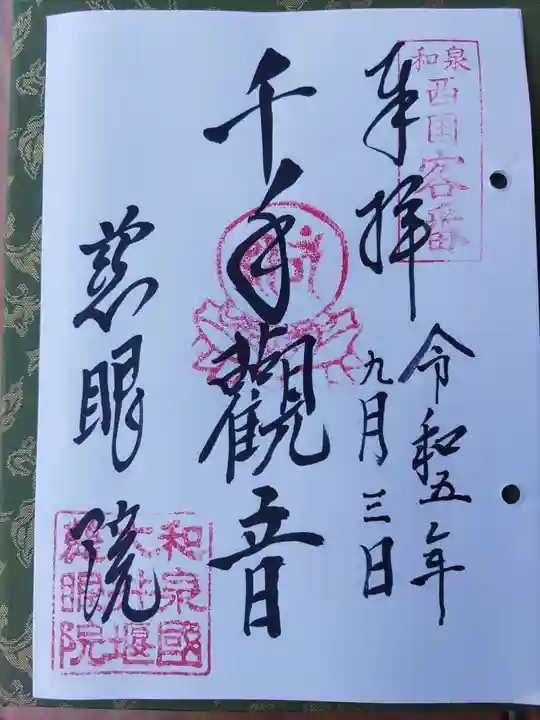 和泉
西国客番
奉拝
令和五年
九月三日
千手観音
慈眼院
和泉國
大井堰
慈眼院